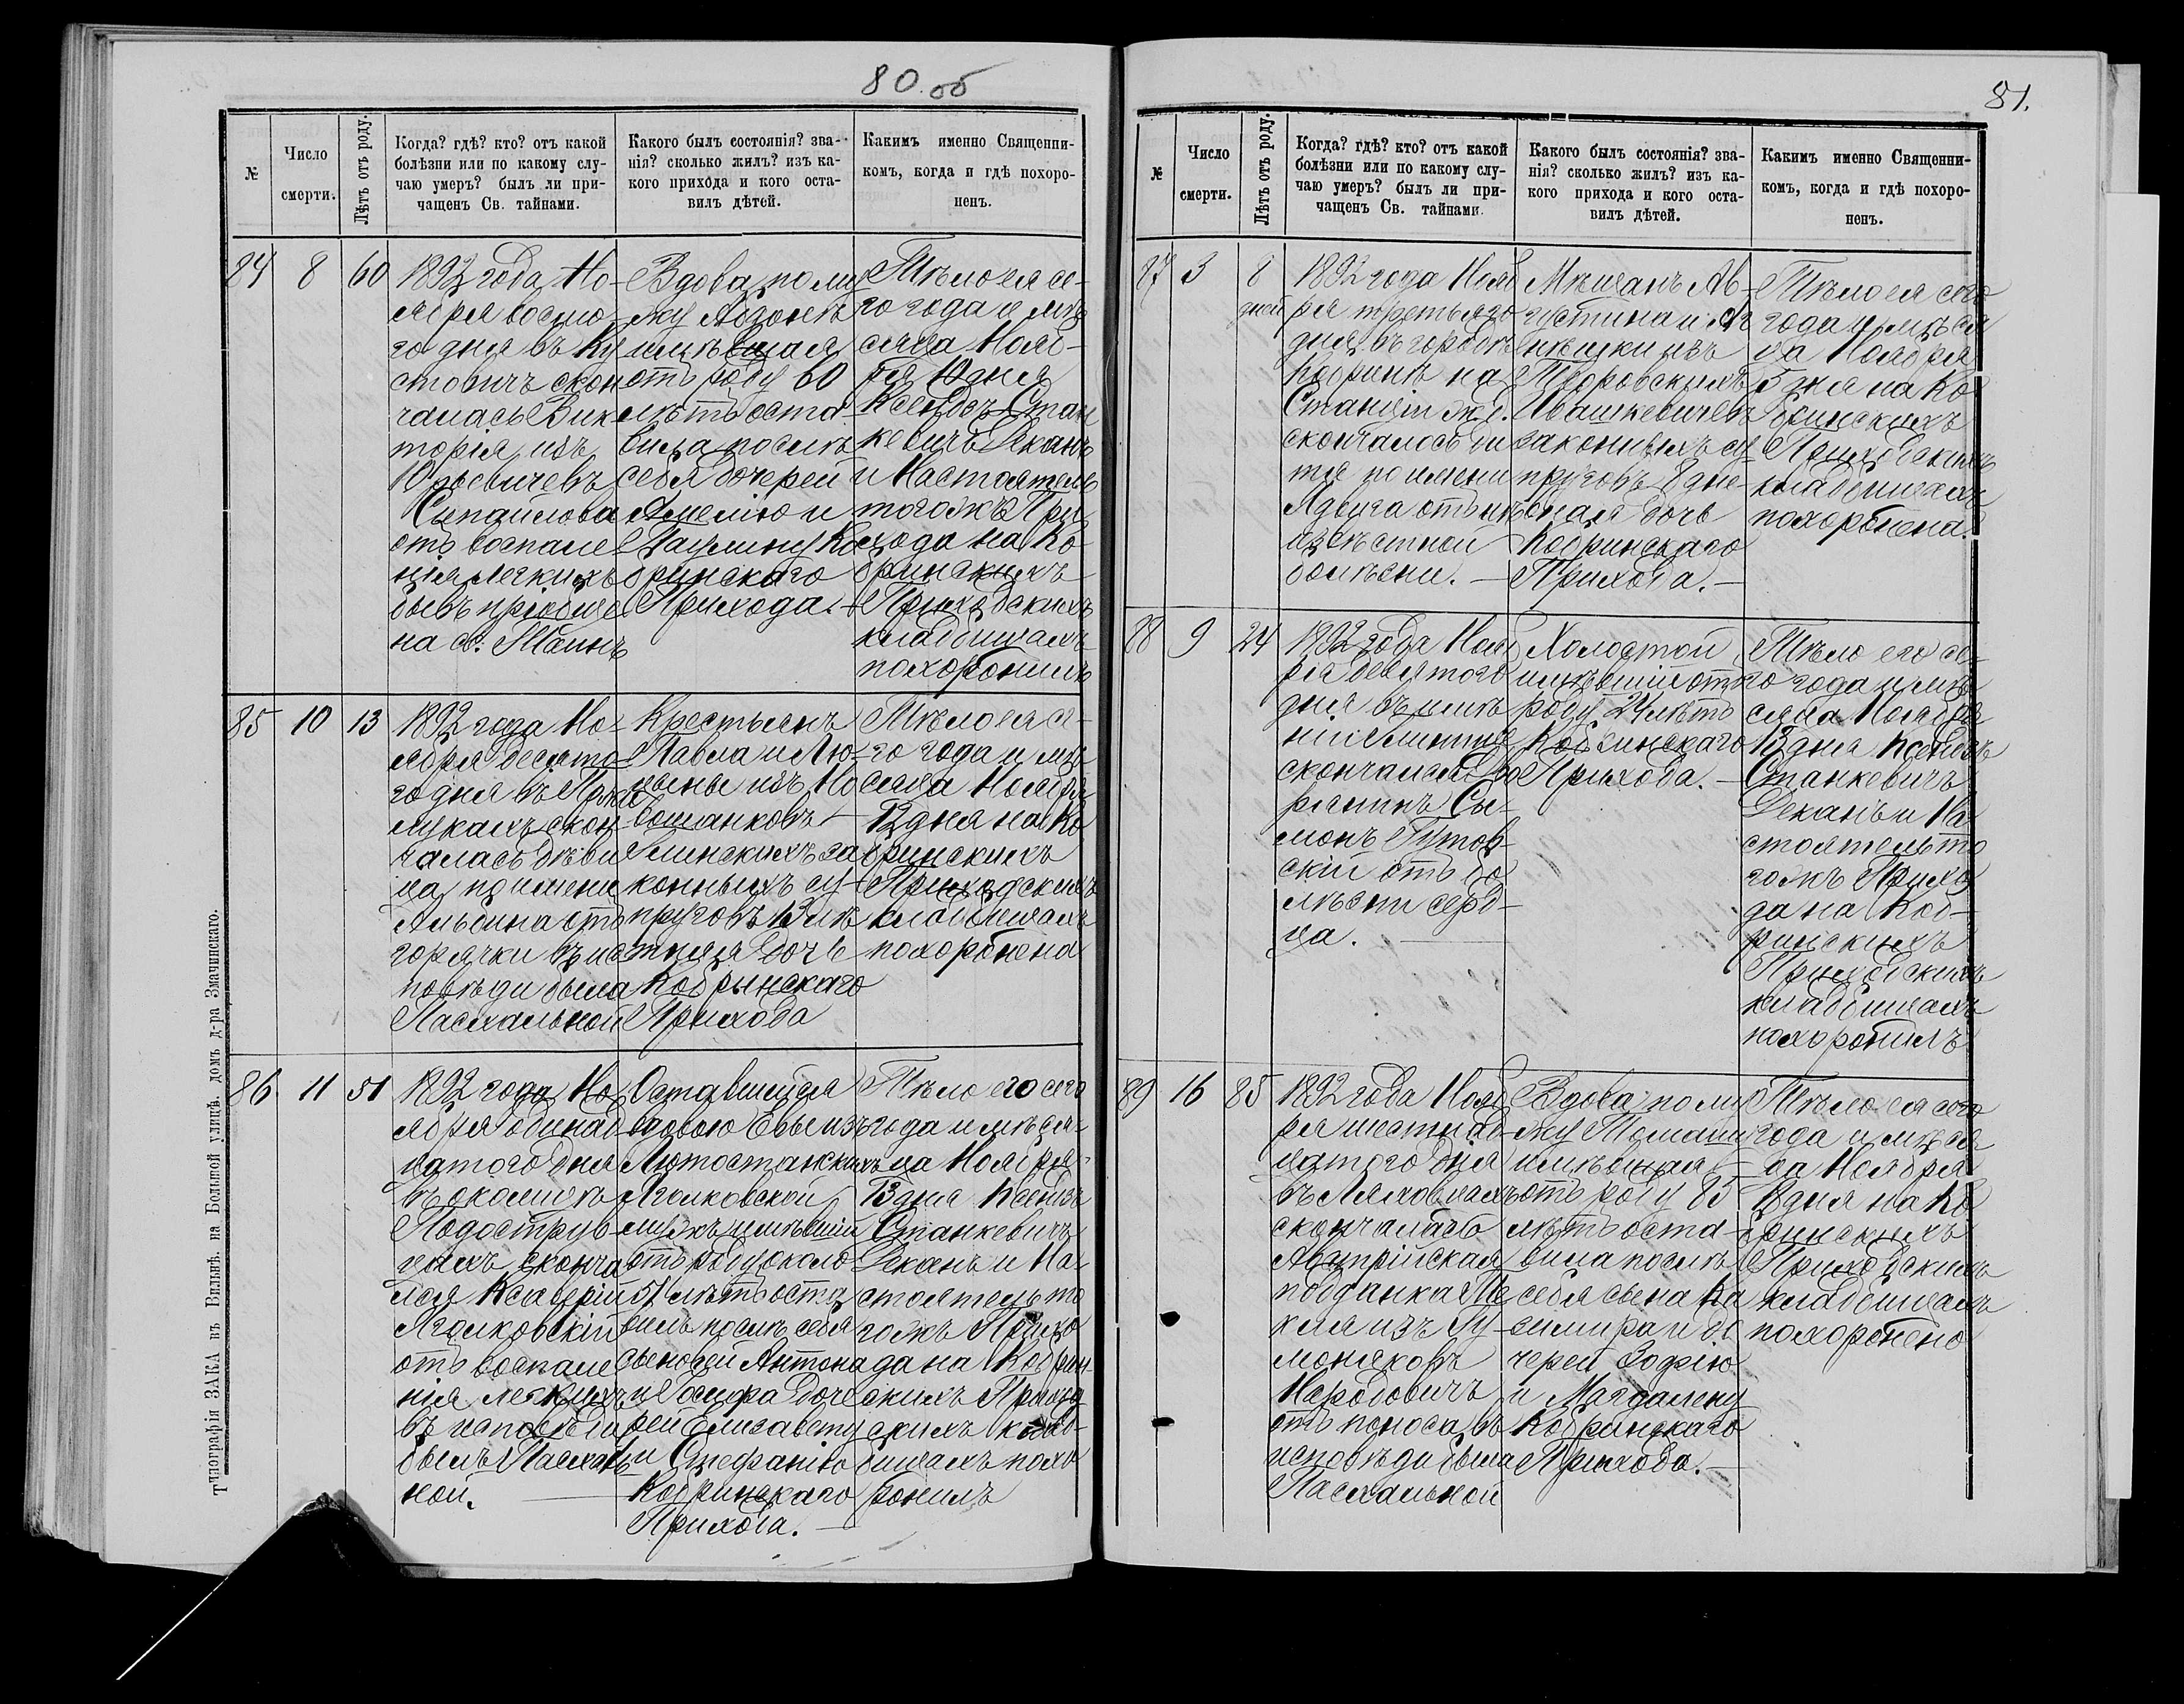 80 об
№
Число
смерти.
Лѣтъ отъ роду.
Когда? гдѣ? кто? отъ какой
болѣзни или по какому слу-
чаю умеръ? былъ ли при-
чащенъ Св. тайнами.
Какого былъ состоянія? зва-
нія? сколько жилъ? изъ ка-
кого прихода и кого оста-
вилъ дѣтей.
Какимъ именно Священни-
комъ, когда и гдѣ похоро-
ненъ.
84
8
60
1892 года Но-
ября восмо-
го дня въ Ку
стовичъ скон
чалась Вик
торія изъ
Юрьевичевъ
Сыпайлова
отъ воспале
нія легкихъ
бывъ пріобще
на св. Таинъ
Вдова по му
жу
имѣвшая
отъ роду 60
лѣтъ оста
вила послѣ
себя дочерей
Амелію и
Паулину Ко
бринскаго
Прихода.
Тѣло ея се-
го года и мѣ
сяца Нояб-
ря 10 дня
Ксендзъ Стан
кевичъ Деканъ
и Настоятель
тогожъ При
хода на Ко
бринскихъ
Приходскихъ
кладбищахъ
похоронилъ
85
10
13
1892 года Но-
ября десято
го дня въ
лукахъ скон
чалась дѣви
ца по имени
Альбина отъ
горячки въ ис
повѣди была
Пасхальной
Крестьянъ
Павла и Лю-
цыны изъ Но
вошанковъ
Глинскихъ за
конныхъ су-
пруговъ 13 лѣ
тняя дочь
Кобрынскаго
Прихода
Тѣло ея се-
го года и мѣ
сяца Ноября
12 дня на Ко
бринскихъ
Приходскихъ
кладбищахъ
похоронена
86
11
51
1892 года Но
ября одинад
цатого дня
въ околицѣ
Подостров
цахъ сконча
лся Ксаверій
Яголковскій
отъ воспале
нія легкихъ
въ исповѣди
былъ Пасхаль
ной.
Оставшейся
вдовою Евы изъ
Лютостанскихъ
Яголковской
мужъ имѣвшій
отъ роду около
51 лѣтъ оста
вилъ послѣ себя
сыновей Антона
и Іосифа доче
рей Елизавету
и Стефанію
Кобринскаго
Прихода.
Тѣло его сего
года и мѣся-
ца Ноября
13 дня Ксендзъ
Станкевичъ
Деканъ и На
стоятель то
гожъ Прихо
да на Кобрин
скихъ Приход
скихъ клад-
бищахъ похо
ронилъ
Типографія ЗАКА въ Вильнѣ. на Большой улицѣ. домъ д-ра Змачинскаго.
81.
№
Число
смерти.
Лѣтъ отъ роду.
Когда? гдѣ? кто? отъ какой
болѣзни или по какому слу-
чаю умеръ? былъ ли при-
чащенъ Св. тайнами.
Какого былъ состоянія? зва-
нія? сколько жилъ? изъ ка-
кого прихода и кого оста-
вилъ дѣтей.
Какимъ именно Священни-
комъ, когда и гдѣ похоро-
ненъ.
87
3
8
дней
1892 года Нояб
ря третьяго
дня въ городѣ
Кобринѣ на
Станціи ж.д.
скончалось ди
тя по имени
Ядвига отъ не
извѣстной
болѣзни.
Мѣщанъ Ав-
густина и Аг
нѣшки изъ
Иващкевичевъ
законныхъ су-
пруговъ 8 дне-
вная дочь
Кобринскаго
Прихода.
Тѣло ея сего
года и мѣся
ца Ноября
5 дня на Ко
бринскихъ
Приходскихъ
кладбищахъ
похоронена.
88
9
24
1892 года Нояб
ря девятого
дня въ имѣ
ніи
скончался Дво
рянинъ Сы-
монъ Гутов
скій отъ бо
лѣзни серд-
ца.
Холостой
имѣвшій отъ
роду 24 лѣтъ
Кобринскаго
Прихода.
Тѣло его се-
го года и мѣ
сяца Ноября
13 дня Ксендзъ
Станкевичъ
Деканъ и На
стоятель то
гожъ Прихо
да на Коб-
ринскихъ
Приходскихъ
кладбищахъ
похоронилъ
89
16
85
1892 года Нояб
ря шестнад
цатого дня
въ Ляховцахъ
скончалась
Австрійская
подданка Те
кля изъ Гу-
моняковъ
Народовичъ
отъ поноса въ
исповѣди была
Пасхальной
Вдова по му
жу Томашу
имѣвшая
отъ роду 85
лѣтъ оста-
вила послѣ
себя сына Ка
зимира и до
черей Зофію
и Магдалену
Кобринскаго
Прихода.
Тѣло ея сего
года и мѣся
ца Ноября
18 дня на Ко
бринскихъ
Приходскихъ
кладбищахъ
похоронено